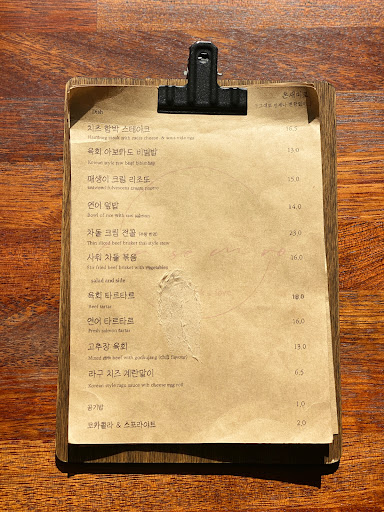 Dish
치즈 함박 스테이크 16.5
육회 아보카도 비빔밥 13.0
Korean style raw beef bibimbap
매생이 크림 리조또 15.0
연어 덮밥 14.0
Bowl of rice with raw salmon
차돌 크림 전골 23.0
Thin sliced beef brisket style stew
사워 차돌 볶음 16.0
Stir fried beef brisket with vegetables
salad and side
육회 타르타르 18.0
Beef tartar
연어 타르타르 16.0
Fresh salmon tartar
고추장 육회 13.0
Mixed raw beef with gochujang
라구 치즈 계란말이 6.5
Korean style ragu sauce with cheese egg roll
공기밥 1.0
코카콜라 & 스프라이트 2.0